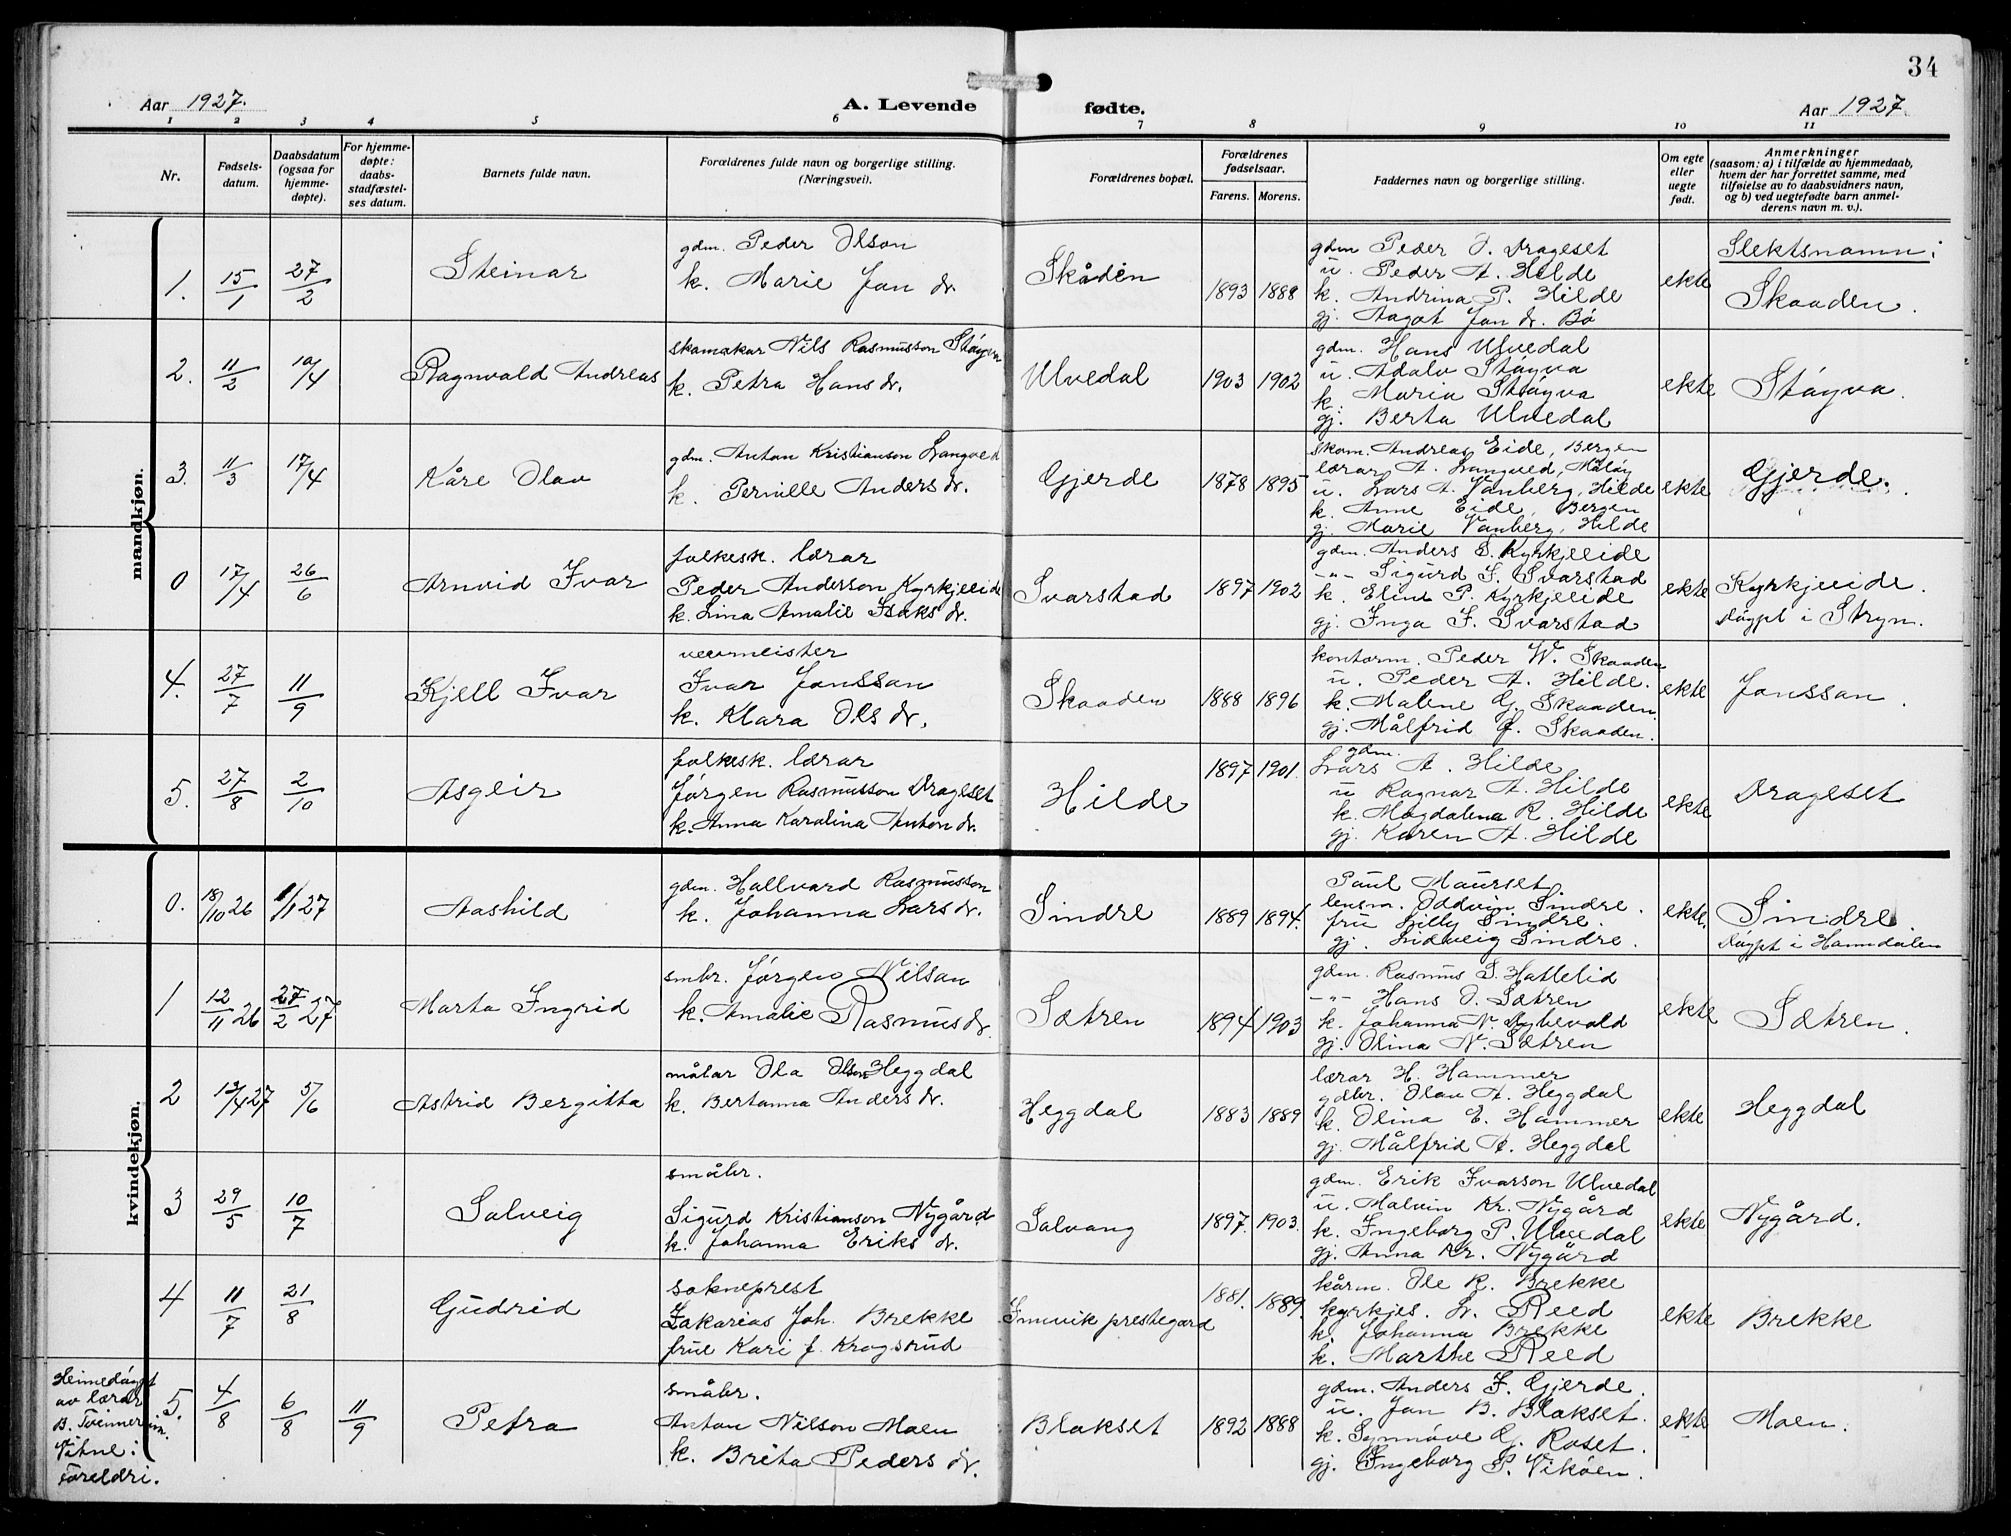 34
Aar 1927.
A. Levende fødte.
Aar 1927.
1 2 3 4 5 6 7 8 9 10 11
Nr.
Fødsels-
datum.
Daabsdatum
(ogsaa for
hjemme-
døpte).
For hjemme-
døpte:
daabs-
stadfæstel-
ses datum.
Barnets fulde navn.
Forældrenes fulde navn og borgerlige stilling.
(Næringsvei).
Forældrenes bopæl.
Forældrenes
fødselsaar.
Farens. Morens.
Faddernes navn og borgerlige stilling.
Om egte
eller
uegte
født.
Anmerkninger
(saasom: a) i tilfælde av hjemmedaab,
hvem der har forrettet samme, med
tilføielse av to daabsvidners navn,
og b) ved uegtefødte barn anmel-
derens navn m. v.).
mandkjøn.
1. 15/1 27/2
Steinar
gdm. Peder Olson
k. Marie Jon dr.
Skåden
1893 1888
gdm Peder O. Drageset
u. Peder A. Hilde
k. Andrina P. Hilde
gj. Aagot Jon dr. Bø
ekte
Slektsnamn:
Skaaden.
2. 11/2 10/4
Ragnvald Andreas
skomakar Nils Rasmusson Støyva
k. Petra Hans dr.
Ulvedal
1903 1902
gdm. Hans Ulvedal
u. Adalv Støyva
k. Maria Støyva
gj. Berta Ulvedal
ekte
Støyva.
3. 11/3 17/4
Kåre Olav
gdm. Anton Kristianson Langved
k. Pernille Anders dr.
Gjerde
1878 1895
skom. Andreas Eide, Bergen
lærar A. Langved, Måløy
u. Lars A. Vanberg, Hilde
k. Anne Eide, Bergen
gj. Marie Vanberg, Hilde
ekte
Gjerde.
0 17/4 26/6
Arnvid Ivar
folkesk. lærar
Peder Anderson Kyrkjeeide
k. Lina Amalie Isaks dr.
Svarstad
1897 1902
gdm. Anders S. Kyrkjeeide
-"- Sigurd I. Svarstad
k. Eline P. Kyrkjeeide
gj. Inga I. Svarstad
ekte
Kyrkjeeide.
Døypt i Stryn.
4. 27/7 11/9
Kjell Ivar
Ivar Jonsson
k. Klara Ols dr.
Skaaden
1888 1896
kontorm. Peder W. Skaaden
u. Peder A. Hilde.
k. Malene G. Skaaden.
gj. Målfrid J. Skaaden.
ekte
Jonsson.
5. 27/8 2/10
Asgeir
folkesk. lærar
Jørgen Rasmusson Drageset
k. Anna Karolina Anton dr.
Hilde
1897 1901.
gdm.
Lars A. Hilde
u Ragnar A. Hilde
k. Magdalena R. Hilde
gj. Karen A. Hilde
ekte
Drageset
kvindekjøn.
0. 18/10 26 1/1 27
Aashild
gdm. Hallvard Rasmusson
k. Johanna Lars dr.
Sindre
1889 1894.
Paul Maurset.
lensm. Oddvin Sindre.
fru Lilly Sindre.
gj. Lidveig Sindre.
ekte.
Sindre.
Døypt i Horndalen
1 12/11 26 27/2 27
Marta Ingrid
smbr. Jørgen Nilsan
k. Amalie Rasmus dr.
Sætren
1894 1903
gdm. Rasmus S. Hattelid
-"- Hans O. Sætren
k. Johanna N. Dybevold
gj. Olina N. Sætren
ekte
Sætren.
2 13/4 27 5/6
Astrid Bergitta
målar Ola Olson Heggdal
k. Bertanna Anders dr.
Heggdal
1883 1889
lærar H. Hammer
gdbr. Olav A. Heggdal
k. Olina E. Hammer
gj. Målfrid A. Heggdal
ekte
Heggdal
3 29/5 10/7
Solveig
småbr.
Sigurd Kristianson Nygård
k. Johanna Eriks dr.
Solvang
1897. 1903.
gdm. Erik Ivarson Ulvedal
u. Malvin Kr. Nygård
k. Ingeborg P. Ulvedal
gj. Anna Kr. Nygård
ekte
Nygård.
4 11/7 21/8
Gudrid
sokneprest
Zakarias Joh. Brekke
frue Kari f. Krogsrud
Innvik prestegard
1881. 1889.
kårm. Ole R. Brekke
kyrkjes. L. Reed
k. Johanna Brekke
k. Marthe Reed
ekte
Brekke
Heimedøypt
av lærar
B. Sveinne
Vitne:
foreldri.
5. 4/8 6/8 11/9
Petra
småbr.
Anton Nilson Moen
k. Brita Peders dr.
Blakset
1892 1888
gdm. Anders I. Gjerde.
u. Jon B. Blakset.
k. Synnøve G. Roset.
gj. Ingeborg P. Vikøen.
ekte
Moen.